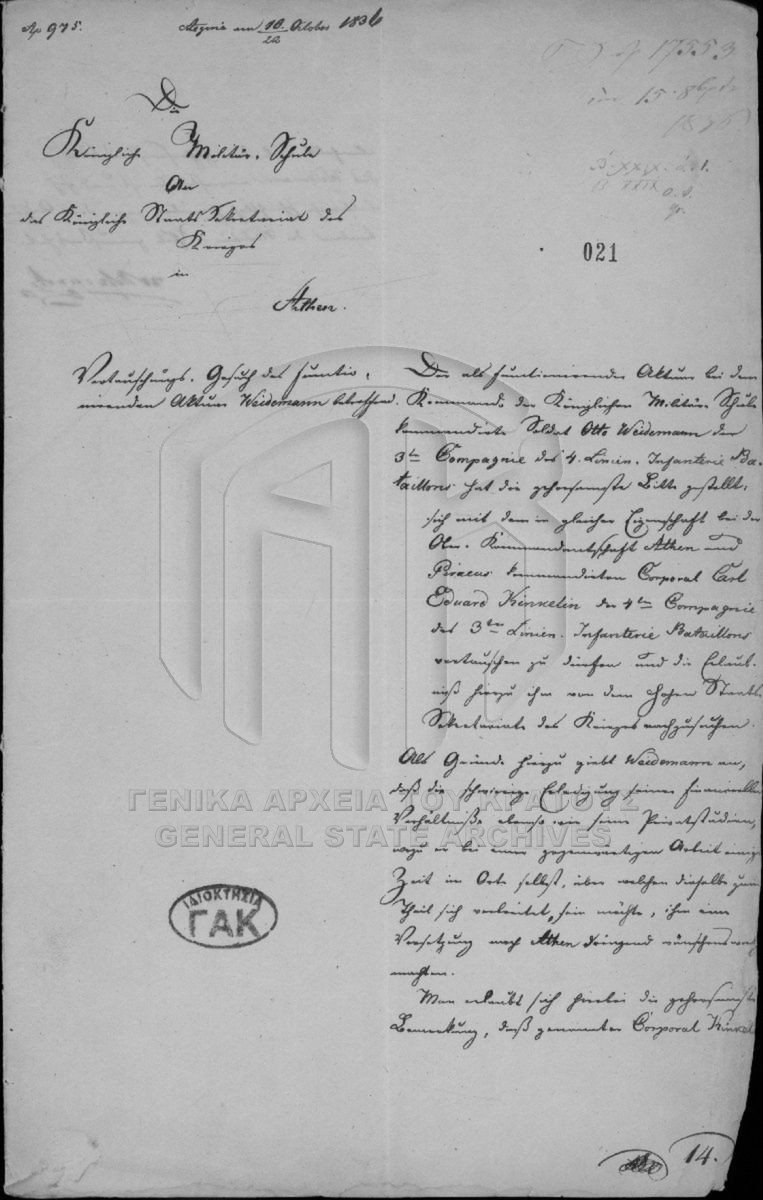 Ap 975.
Aegina am 10/22 October 1836
17553
15
Die
Königliche Militär-Schule
An
das Königliche Staats Sekretariat des
Krieges
in
Athen.
021
Vertauschungs-Gesuch des functio-
nirenden Aktuar Weidemann betreffend.
Der als functionirender Aktuar bei dem
Kommando der Königlichen Militär-Schule
kommandirte Soldat Otto Weidemann der
3ten Compagnie des 4. Linien-Infanterie Ba-
taillons hat die gehorsamste Bitte gestellt,
sich mit dem in gleicher Eigenschaft bei der
Ober-Kommandantschaft Athen und
Piraeus kommandirten Corporal Carl
Eduard Kinkelin der 4ten Compagnie
des 3ten Linien-Infanterie Bataillons
vertauschen zu dürfen und die Erlaub-
niß hiezu ihm von dem hohen Staats-
Sekretariate des Krieges nachzusuchen.
Als Gründe hiezu giebt Weidemann an,
daß die schwierige Erledigung seiner finanziellen
Verhältniße ebenso wie seine Privatstudien,
wozu er bei einer gegenwärtigen Arbeit einige
Zeit im Orte selbst, über welchen dieselbe zum
Theil sich verbreitet, sein möchte, ihm eine
Versetzung nach Athen dringend wünschenswerth
machten.
Man erlaubt sich hierbei die gehorsamste
Bemerkung, daß genannter Corporal Kinkelin
14.
ΓΕΝΙΚΑ ΑΡΧΕΙΑ ΤΟΥ ΚΡΑΤΟΥΣ
GENERAL STATE ARCHIVES
ΙΔΙΟΚΤΗΣΙΑ
ΓΑΚ